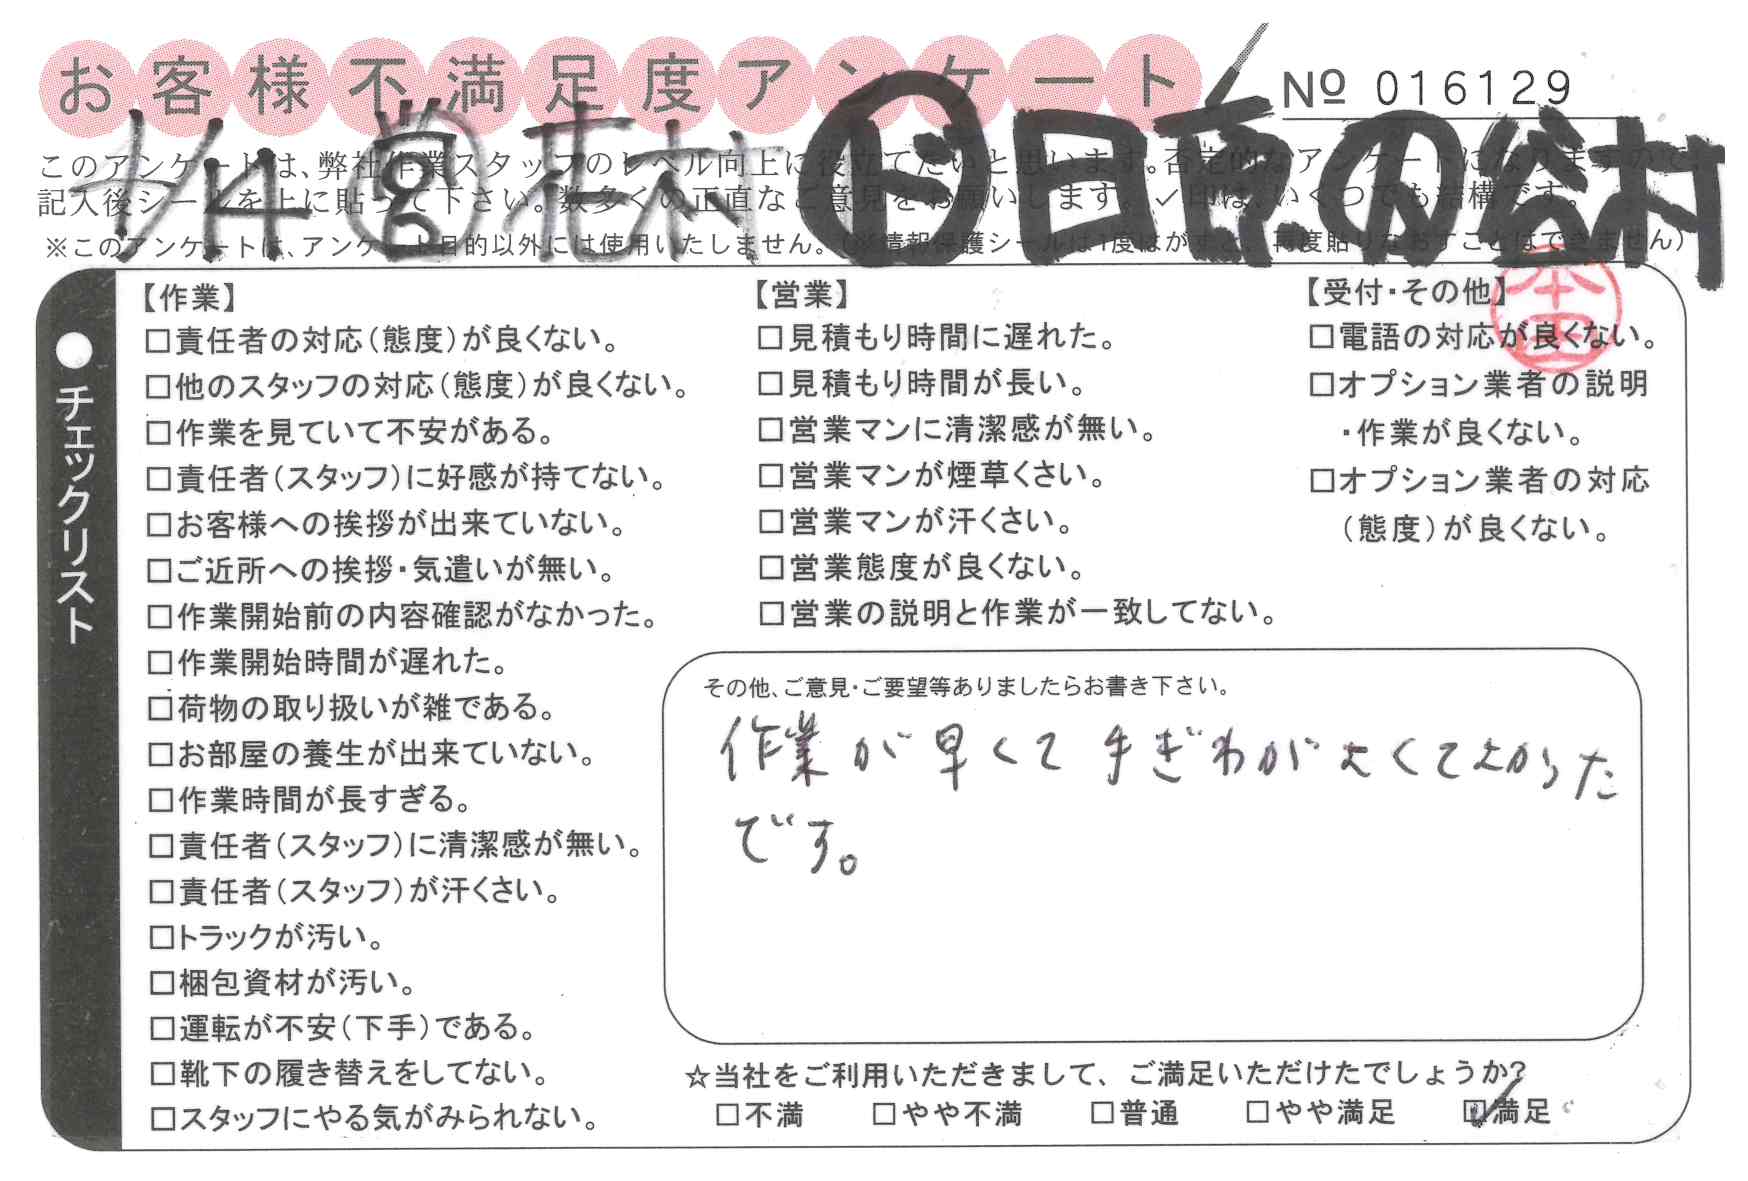 お客様不満足度アンケート
№ 016129
4/4 営 木村 付 日原の谷村
このアンケートは、弊社作業スタッフのレベル向上に役立てたいと思います。否定的なアンケートになりますので、
記入後シールを上に貼って下さい。数多くの正直なご意見をお願いします。✓印は、いくつでも結構です。
※このアンケートは、アンケート目的以外には使用いたしません。(※情報保護シールは1度はがすと、再度貼りなおすことはできません)
●チェックリスト
【作業】
□責任者の対応(態度)が良くない。
□他のスタッフの対応(態度)が良くない。
□作業を見ていて不安がある。
□責任者(スタッフ)に好感が持てない。
□お客様への挨拶が出来ていない。
□ご近所への挨拶・気遣いが無い。
□作業開始前の内容確認がなかった。
□作業開始時間が遅れた。
□荷物の取り扱いが雑である。
□お部屋の養生が出来ていない。
□作業時間が長すぎる。
□責任者(スタッフ)に清潔感が無い。
□責任者(スタッフ)が汗くさい。
□トラックが汚い。
□梱包資材が汚い。
□運転が不安(下手)である。
□靴下の履き替えをしてない。
□スタッフにやる気がみられない。
【営業】
□見積もり時間に遅れた。
□見積もり時間が長い。
□営業マンに清潔感が無い。
□営業マンが煙草くさい。
□営業マンが汗くさい。
□営業態度が良くない。
□営業の説明と作業が一致してない。
【受付・その他】
本田
□電話の対応が良くない。
□オプション業者の説明
・作業が良くない。
□オプション業者の対応
(態度)が良くない。
その他、ご意見・ご要望等ありましたらお書き下さい。
作業が早くて手ぎわがよくてよかった
です。
☆当社をご利用いただきまして、ご満足いただけたでしょうか?
□不満 □やや不満 □普通 □やや満足 ☑満足